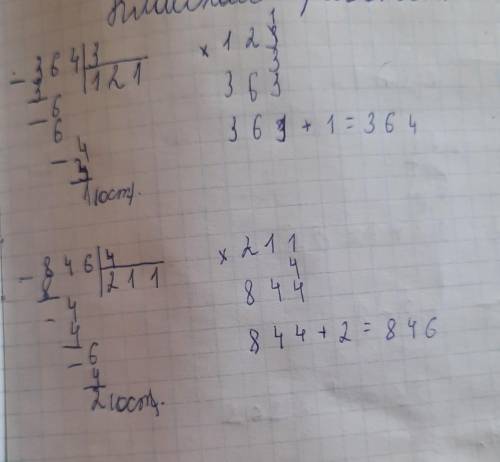 - 364 | 3
3 | 121
- 6
6
- 4
3
1 (ост.
× 121
3
363
363 + 1 = 364
- 846 | 4
8 | 211
- 4
4
- 6
4
2 (ост.
× 211
4
844
844 + 2 = 846